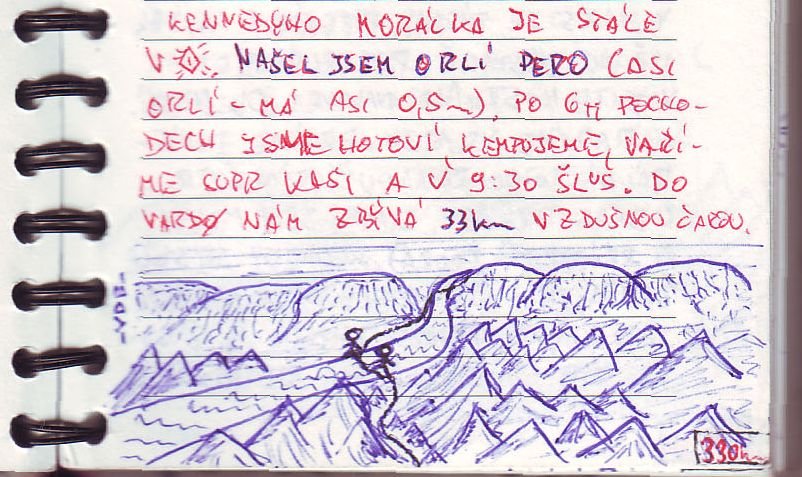 KENNEDYHO MORÁLKA JE STÁLE
V NAŠEL JSEM ORLÍ PERO (ASI
ORLÍ - MÁ ASI 0,5m), PO 6H POCHO-
DECH JSME HOTOVÍ KEMPUJEME, VAŘÍ-
ME SUPR KAŠI A V 9:30 ŠLUS. DO
VARDØ NÁM ZBÝVÁ 33km VZDUŠNOU ČAROU.
330km